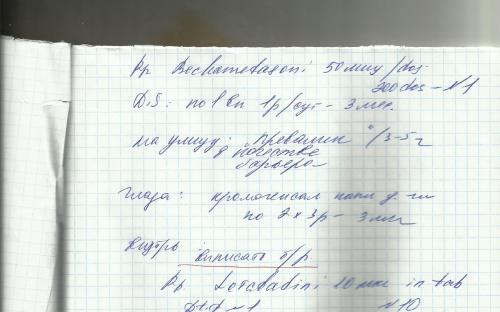 Rp Beclometasoni 50 мкг/dos
200 dos - N1
D.S: по 1 вп 1р/сут - 3 мес.
на улицу: превалин ч/з 3-5 ч
в качестве
барьера
глаза: кромогексал капли д. гл
по 2 к 3р - 3 мес
Внутрь
выписать б/р.
Rp Loratadini 10 мг in tab
D.t.d N1 N10